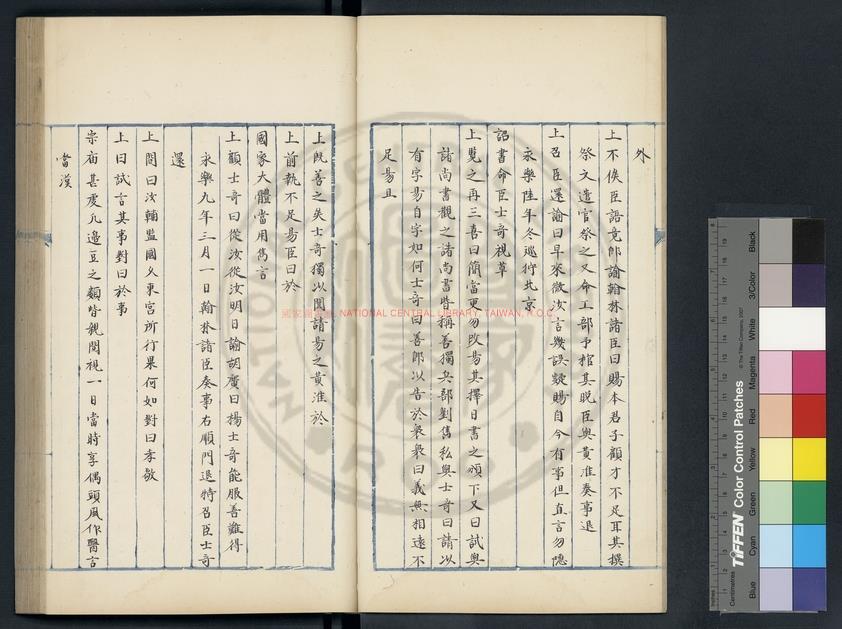 外
上不俟臣語竟即諭翰林諸臣曰賜本君子顧才不足耳其撰
祭文遣官祭之又命工部予棺其既臣與黄淮奏事退
上召臣還諭曰早來微汝言幾誤疑賜自今有事但直言勿隐
永樂陸年冬巡狩北京
詔書命臣士奇視草
上覽之再三喜曰簡當更勿改易其擇日書之頒下又曰試與
諸尚書觀之諸尚書皆稱善獨兵部劉雋私與士奇曰請以
有字易自字如何士奇曰善即以告於衆衆曰義無相遠不
足易且
上既善之矣士奇獨以聞請易之黄淮於
上前執不足易臣曰於
國家大體當用雋言
上顧士奇曰從汝從汝明日諭胡廣曰楊士奇能服善難得
永樂九年三月一日翰林諸臣奏事右順門退特召臣士奇
還
上問曰汝輔監國久東宫所行果何如對曰孝敬
上曰試言其事對曰於事
宗庙甚虔凢邉豆之類皆親閲視一日當時享偶頭風作醫言
當漢
國家圖書館, NATIONAL CENTRAL LIBRARY, TAIWAN, R.O.C.
TIFFEN Color Control Patches
© The Tiffen Company, 2007
Centimetres
Inches
Blue
Cyan
Green
Yellow
Red
Magenta
White
3/Color
Black